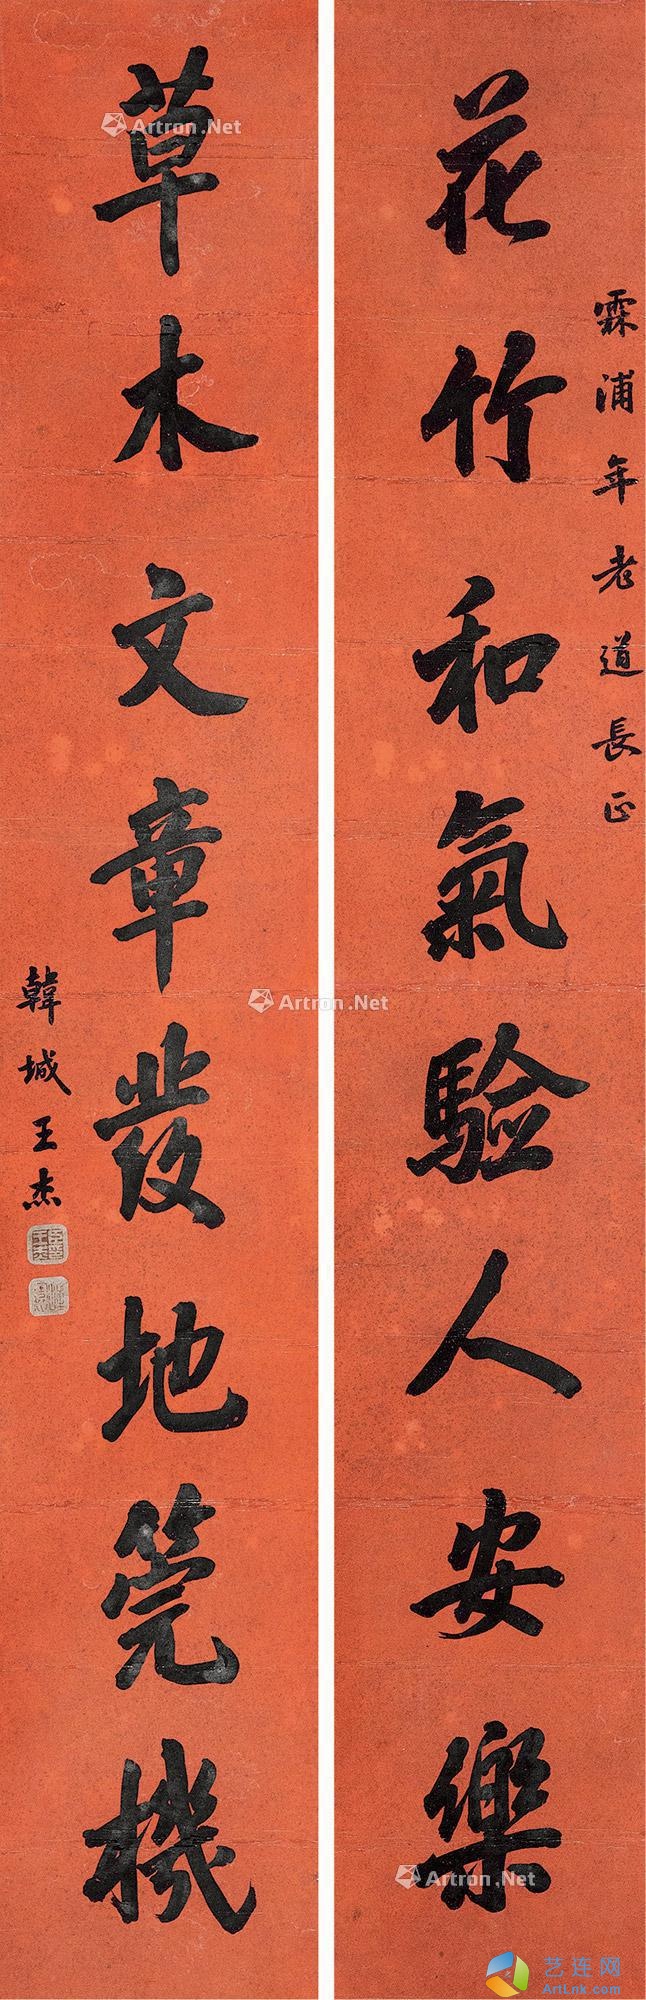 霖浦年老道長正
花竹和氣驗人安樂
草木文章發地筦機
韓城王杰
Artron.Net
Artron.Net
Artron.Net
艺连网
ArtLnk.com